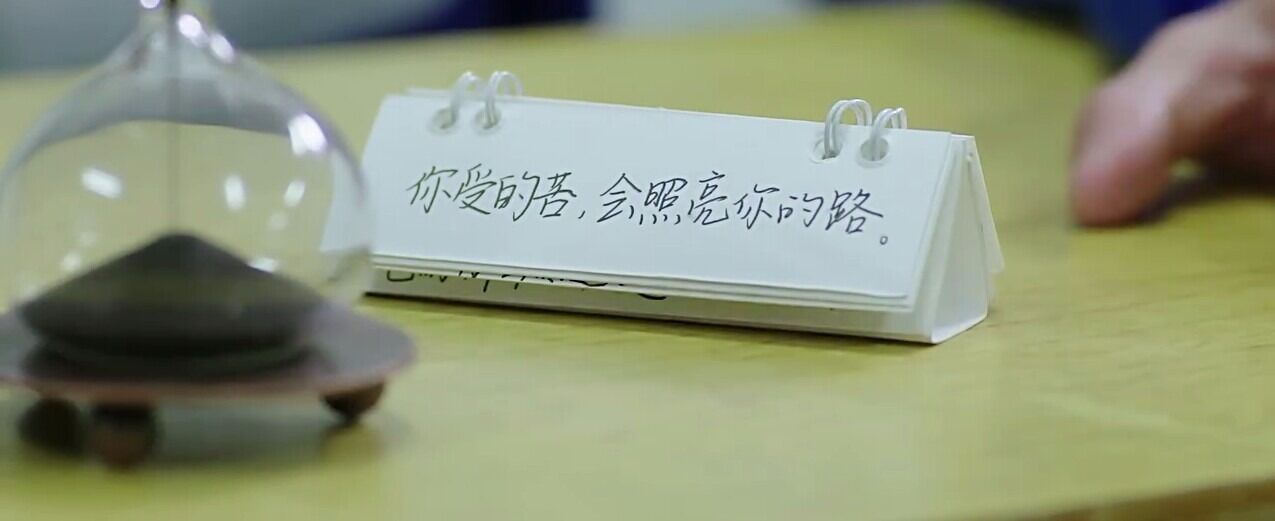 你受的苦,会照亮你的路。